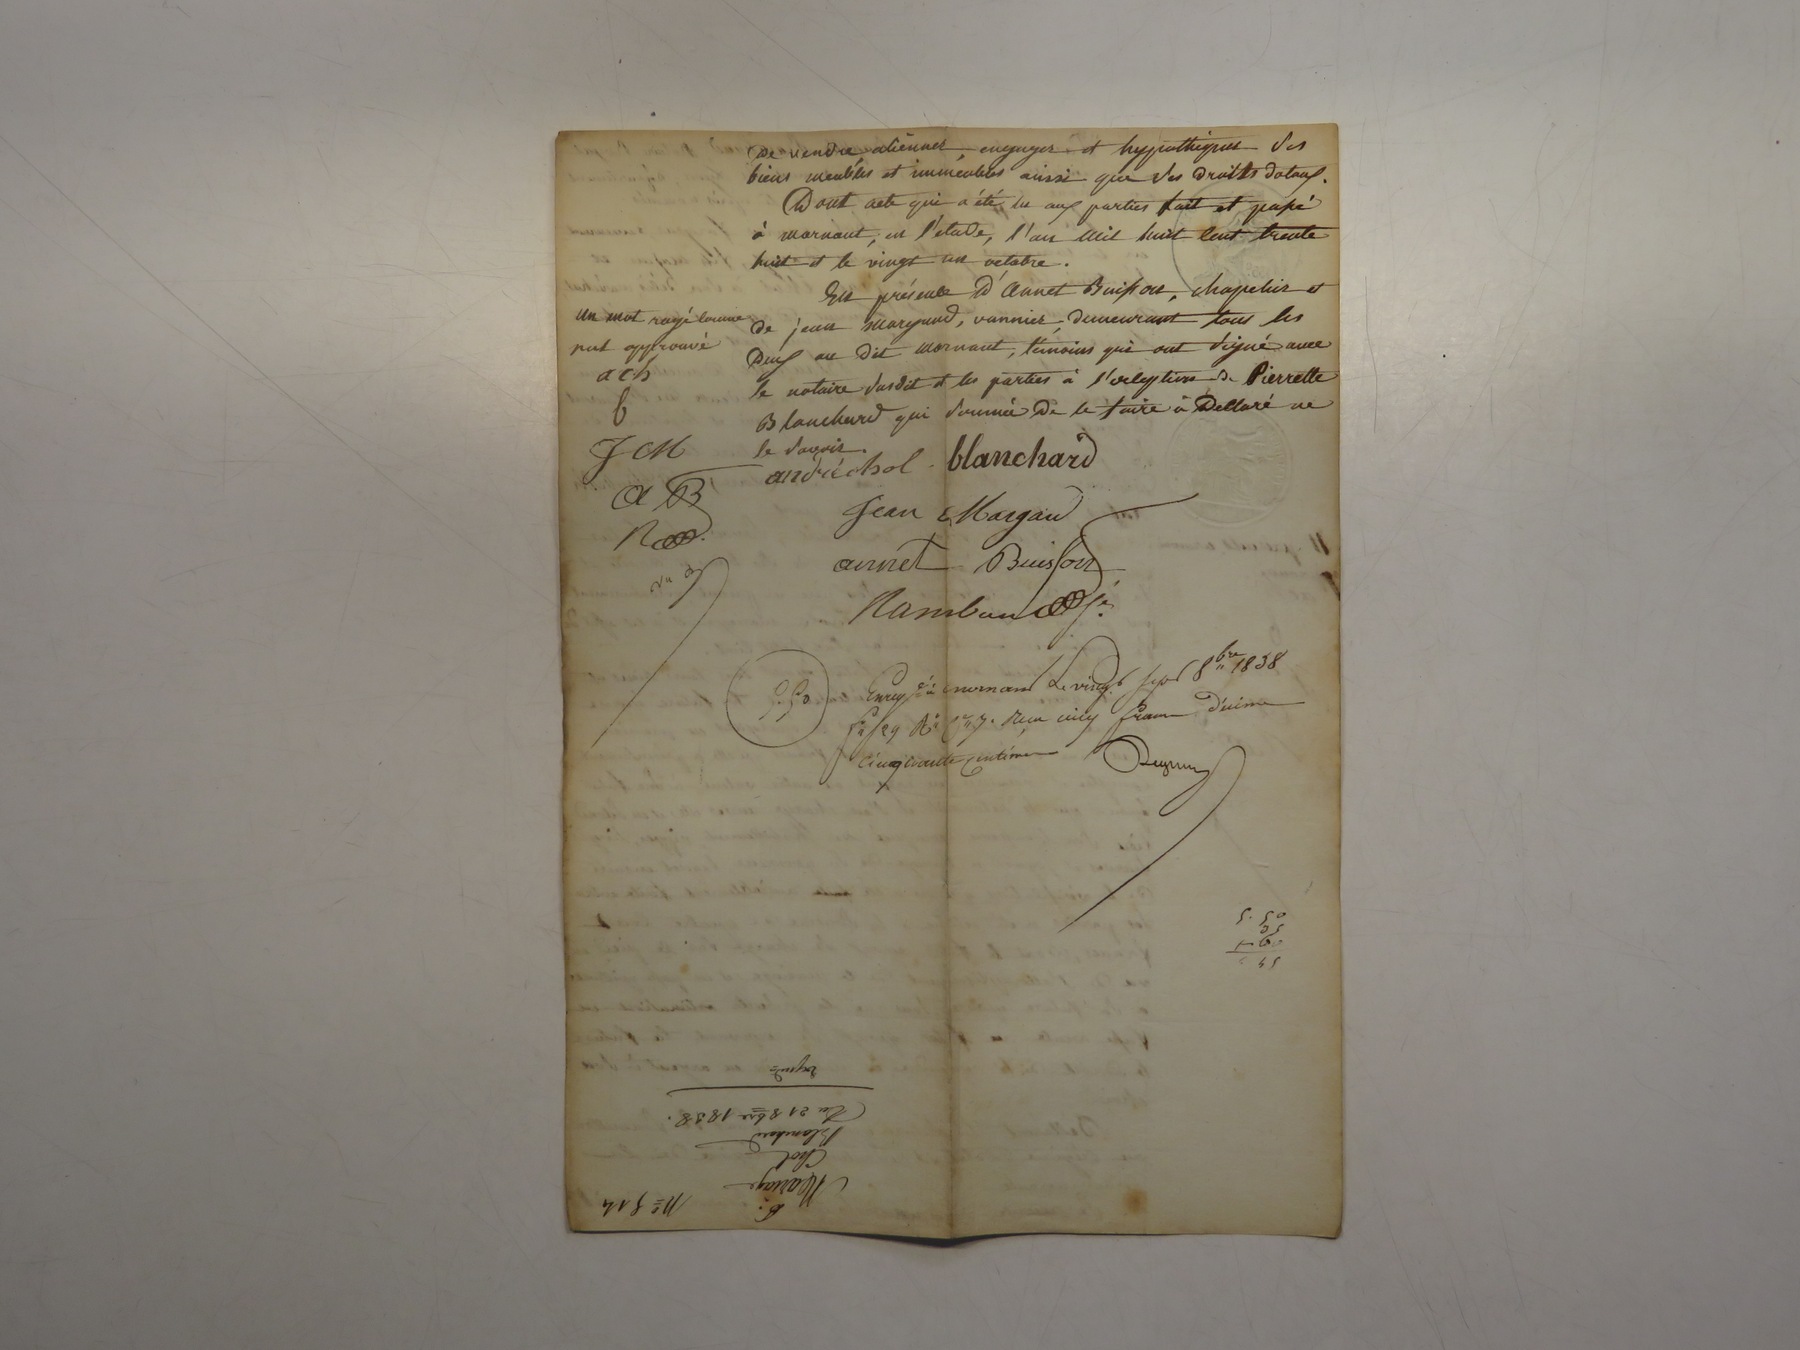 de vendre, aliéner, engager et hypothéquer ses
biens meubles et immeubles ainsi que ses droits dotaux.
Dont acte qui a été lu aux parties fait et passé
à mornant, en l'étude, l'an mil huit cent trente
huit et le vingt un octobre.
En présence d'annet Buisson, chapelier et
de jean margaud, vannier, demeurant tous les
deux au dit mornant, témoins qui ont signé avec
le notaire susdit et les parties à l'exception de Pierrette
Blanchard qui sommée de le faire a déclaré ne
le savoir.
un mot rayé comme
nul approuvé
a ch
b
J M
a B
R
andré chol blanchard
Jean Margaud
annet Buisson
5.50
Enreg.é à mornant Le vingt sept 8bre 1838
cinq francs décime
cinquante centimes
5.50
55
N° 514
B.
Mariage
Chol
Blanchard
Du 21 8bre 1838.